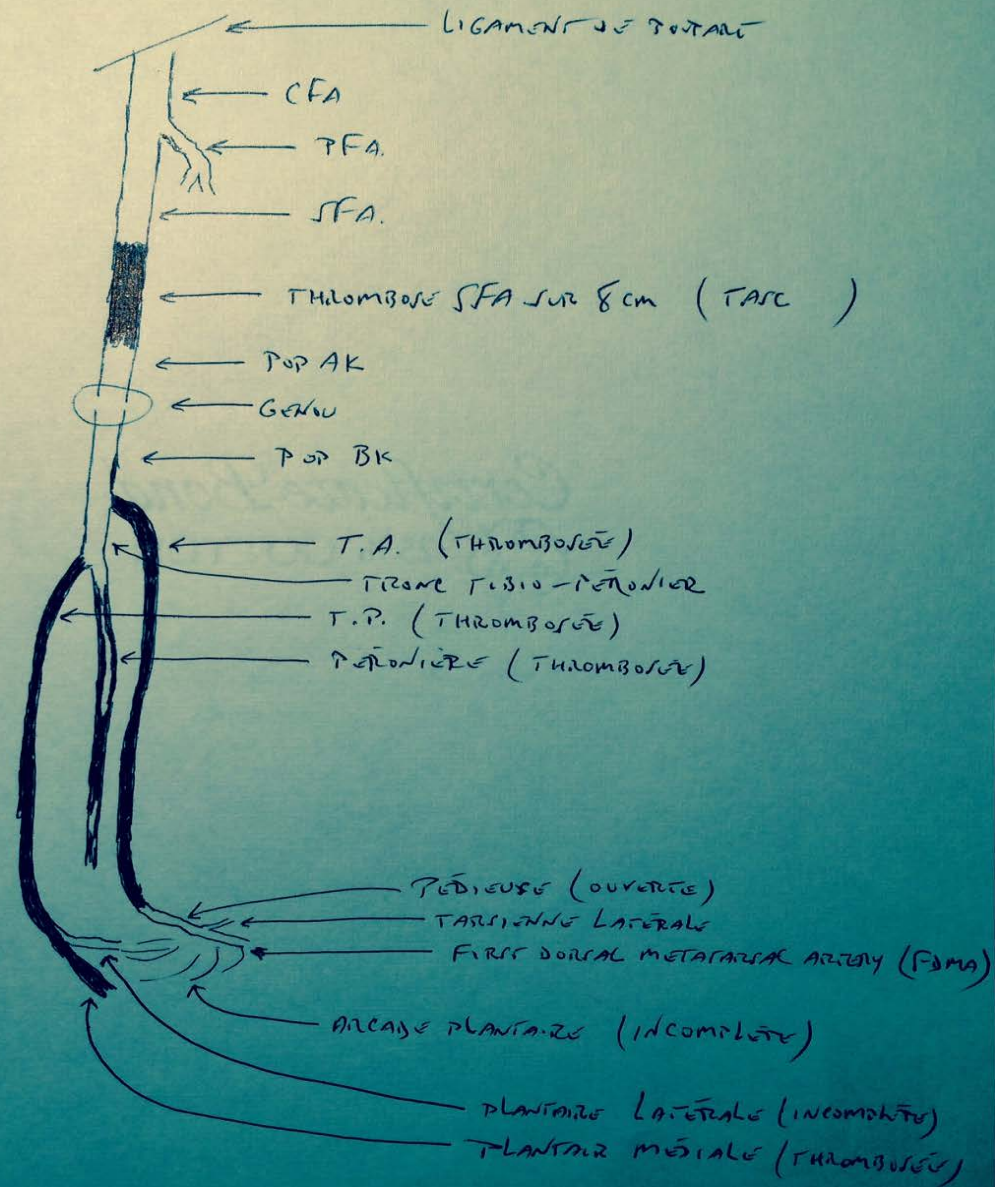 LIGAMENT DE POUPART
CFA
PFA.
SFA.
THROMBOSE SFA SUR 8 cm ( TASC )
POP AK
GENOU
POP BK
T.A. (THROMBOSÉE)
TRONC TIBIO-PÉRONIER
T.P. (THROMBOSÉE)
PÉRONIÈRE (THROMBOSÉE)
PÉDIEUSE (OUVERTE)
TARSIENNE LATÉRALE
FIRST DORSAL METATARSAL ARTERY (FDMA)
ARCADE PLANTAIRE (INCOMPLÈTE)
PLANTAIRE LATÉRALE (INCOMPLÈTE)
PLANTAIR MÉDIALE (THROMBOSÉE)